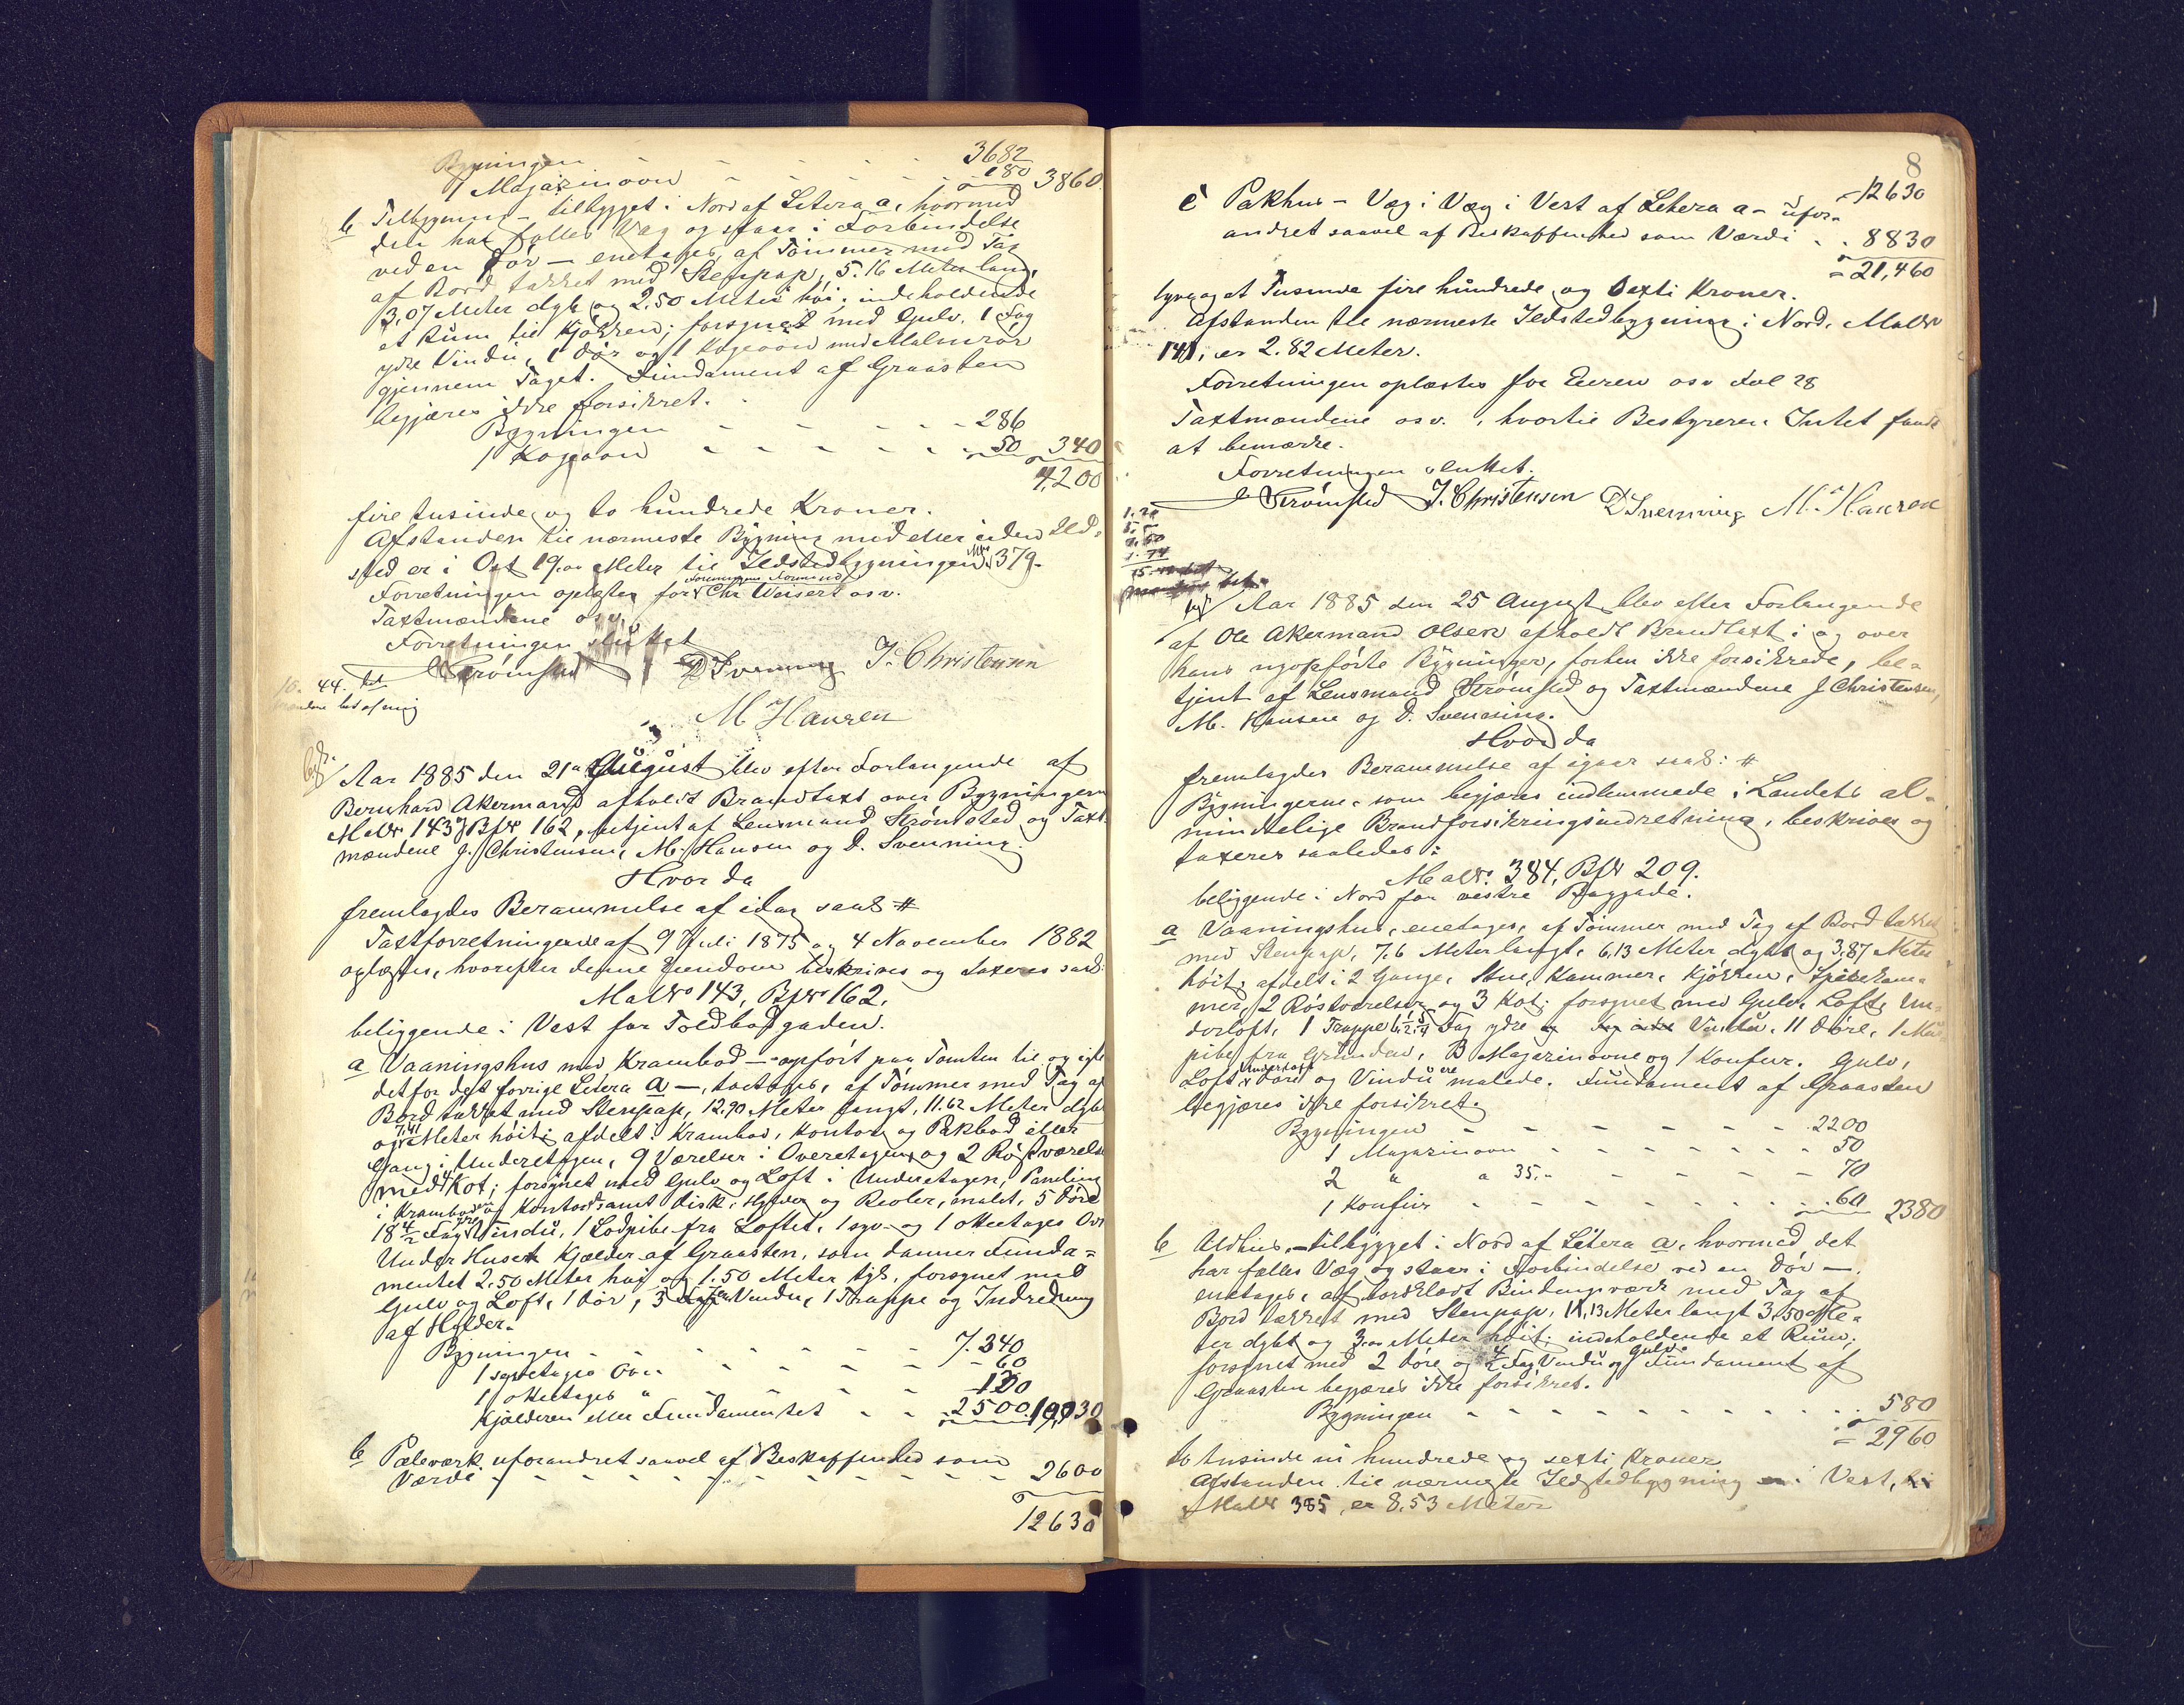 Bygningen - - - - - 3682
1 Magazinovn - - - - - 180 3860
b Tilbygning - tilbygget i Nord af Litera a, hvormed
den har fælles Væg og staar i Forbindelse
ved en Dør - enetages, af Tømmer med Tag
af Bord tækket med Stenpap, 5.16 Meter lang,
3,07 Meter dyb og 2,50 Meter høi; indeholdende
et Rum til Kjøkken; forsynet med Gulv, 1 Fag
ydre Vindu, 1 Dør og 1 Kogeovn med Malmrør
gjennem Taget. Fundament af Graasten
begjæres ikke forsikret.
Bygningen - - - - - 286
1 Kogeovn - - - - - 50 340
4,200
fire tusinde og to hundrede Kroner.
Afstanden til nærmeste Bygning med eller uden Ild-
sted er i Ost 19.00 Meter til Ildstedbygningen MNo 379.
Forretningen oplæstes for Foreningens Formand Chr Weisert osv.
Taxtmændene osv.
Forretningen sluttet
Strømsted D Svenning J. Christensen
10. 44. bet
M Hansen
Aar 1885 den 21de August blev efter Forlangende af
Bernhard Akermand afholdt Brandtaxt over Bygningen
MaNr 143 Bfr 162, betjent af Lensmand Strømsted og Taxt-
mændene J. Christensen, M. Hansen og D. Svenning.
Hvor da
fremlagdes Berammelse af idag saal #
Taxtforretningerne af 9 Juli 1875 og 4 November 1882
oplæstes, hvorefter denne Eiendom beskrives og taxeres saal:
MaNo 143, BfNo 162.
beliggende i Vest for Toldbodgaden.
a Vaaningshus med Krambod - opført paa Tomten til og iste-
detfor det forrige Litera a -, toetages, af Tømmer med Tag af
Bord tækket med Stenpap, 12.90 Meter langt, 11.62 Meter dybt
og 7,41 Meter høit; afdelt i Krambod, Kontor og Pakbod eller
Gang i Underetagen, 9 Værelser i Overetagen og 2 Røstværelser
med 4 Kot; forsynet med Gulv og Loft i Underetagen, Panling
i Krambod og Kontor samt Disk, Hylder og Reoler, malet, 5 Døre
18 4/2 Fag ydre Vindu, 1 Lodpibe fra Loftet, 1 syv- og 1 otteetages Ovn
Under Huset Kjælder af Graasten, som danner Funda-
mentet 2.50 Meter høi og 1.50 Meter tyk, forsynet med
Gulv og Loft, 1 Dør, 3 Fag Vindu, 1 Trappe og Indredning
af Hylder.
Bygningen - - - - - 7.340
1 syvetages Ovn - - - - - 60
1 otteetages " - - - - - 130
Kjælderen eller Fundamentet - - 2500 10,030
b Pæleværk uforandret saavel af Beskaffenhed som
Værdi - - - - - 2600
12630
8
= 12630
c Pakhus - Væg i Væg i Vest af Litera a - ufor-
andret saavel af Beskaffenhed som Værdi - - 8830
= 21,460
tyve og et Tusinde fire hundrede og sexti Kroner.
Afstanden til nærmeste Ildstedbygning i Nord, MaNr
141, er 2.82 Meter.
Forretningen oplæstes for Eieren osv Fol 28
Taxtmændene osv., hvortil Bestyreren Intet fandt
at bemærke.
Forretningen sluttet.
Strømsted J. Christensen D Svenning M. Hansen
Aar 1885 den 25 August blev efter Forlangende
af Ole Akermand Olsen afholdt Brandtaxt i og over
hans nyopførte Bygninger, forhen ikke forsikrede, be-
tjent af Lensmand Strømsted og Taxtmændene J Christensen,
M. Hansen og D. Svenning.
Hvor da
fremlagdes Berammelse af igaar saal: #
Bygningerne, som begjæres indlemmede i Landets al-
mindelige Brandforsikringsindretning, beskrives og
taxeres saaledes:
MaNr. 384, Bfr 209.
beliggende i Nord for vestre Baggade.
a Vaaningshus, enetages, af Tømmer med Tag af Bord tækket
med Stenpap, 7.6 Meter langt, 6.13 Meter dybt og 3.87 Meter
høit; afdelt i 2 Gange, Stue, Kammer, Kjøkken, Spisekam-
mer, 2 Røstværelser og 3 Kot; forsynet med Gulv, Loft, Un-
derloft, 1 Trappe, Fag ydre Vindu, 11 Døre, 1 Mur-
pibe fra Grunden, 3 Magazinovne og 1 Komfur. Gulv,
Loft, Underloft Døre og Vindu ere malede. Fundament af Graasten
begjæres ikke forsikret.
Bygningen - - - - - 2200
1 Magazinovn - - - - - 50
2 " a 35.- - - - - 70
1 Komfur - - - - - 60 2380
b Uldhus, - tilbygget i Nord af Litera a, hvormed det
har fælles Væg og staar i Forbindelse ved en Dør -.
enetages, af bordklædt Bindingsværk med Tag af
Bord tækket med Stenpap, 11,13 Meter langt 3,50 Me-
ter dybt og 3.00 Meter høit; indeholdende et Rum;
forsynet med 2 Døre og 4/2 Fag Vindu og Gulv. Fundament af
Graasten begjæres ikke forsikret.
Bygningen - - - - - 580
= 2960
to tusinde ni hundrede og sexti Kroner
Afstanden til nærmeste Ildstedbygning i Vest,
MaNr 385, er 8.53 Meter